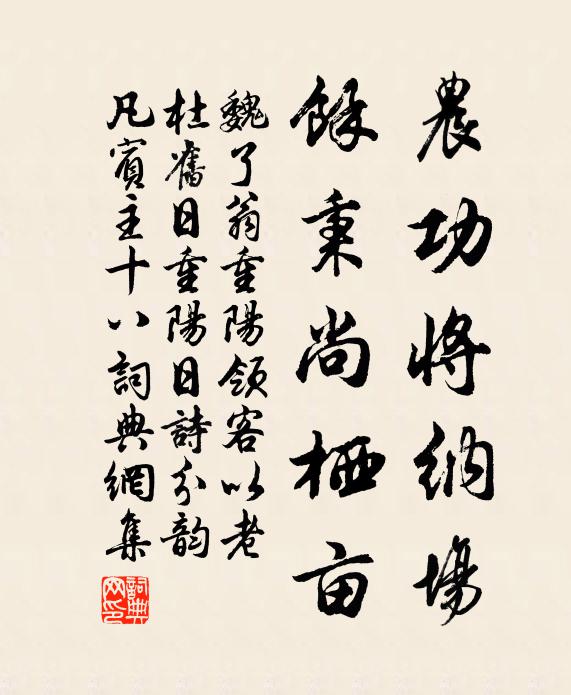 農功将納場
餘秉尚栖亩
魏了翁重陽領客以老
杜舊日重陽日詩分韵
凡賓主十八詞典網集
詞典網印